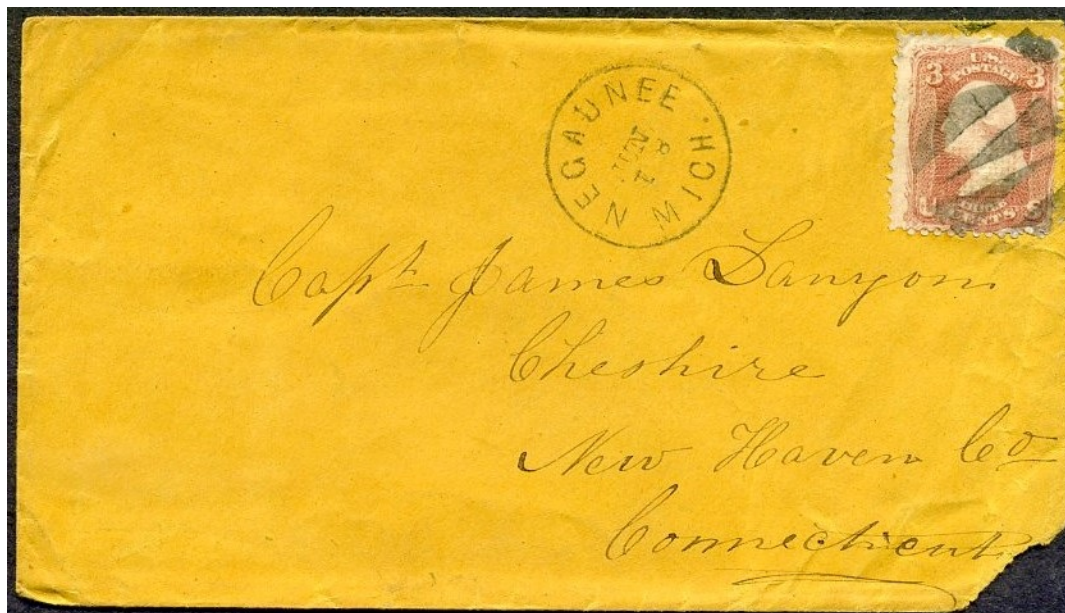 NEGAUNEE MICH.
JUN
3 U.S. 3
POSTAGE
U CENTS S
Capt. James Lanyon
Cheshire
New Haven Co
Connecticut